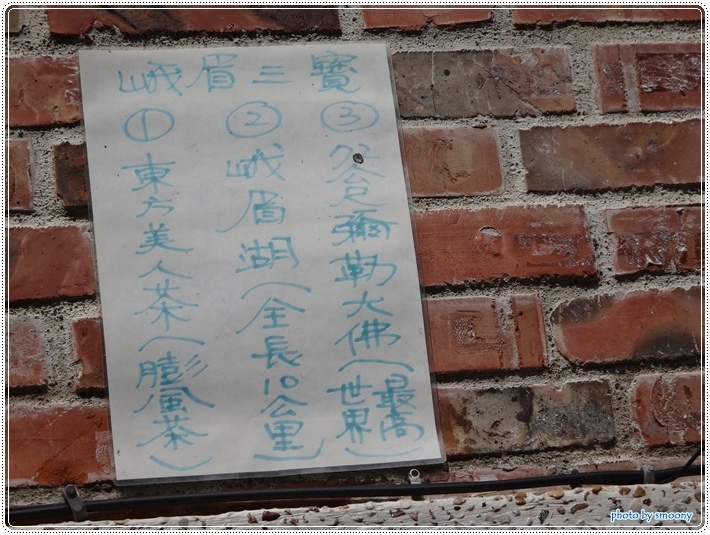 峨眉三寶
① 東方美人茶(膨風茶)
② 峨眉湖(全長10公里)
③ 彌勒大佛(世界最高)
photo by smoony